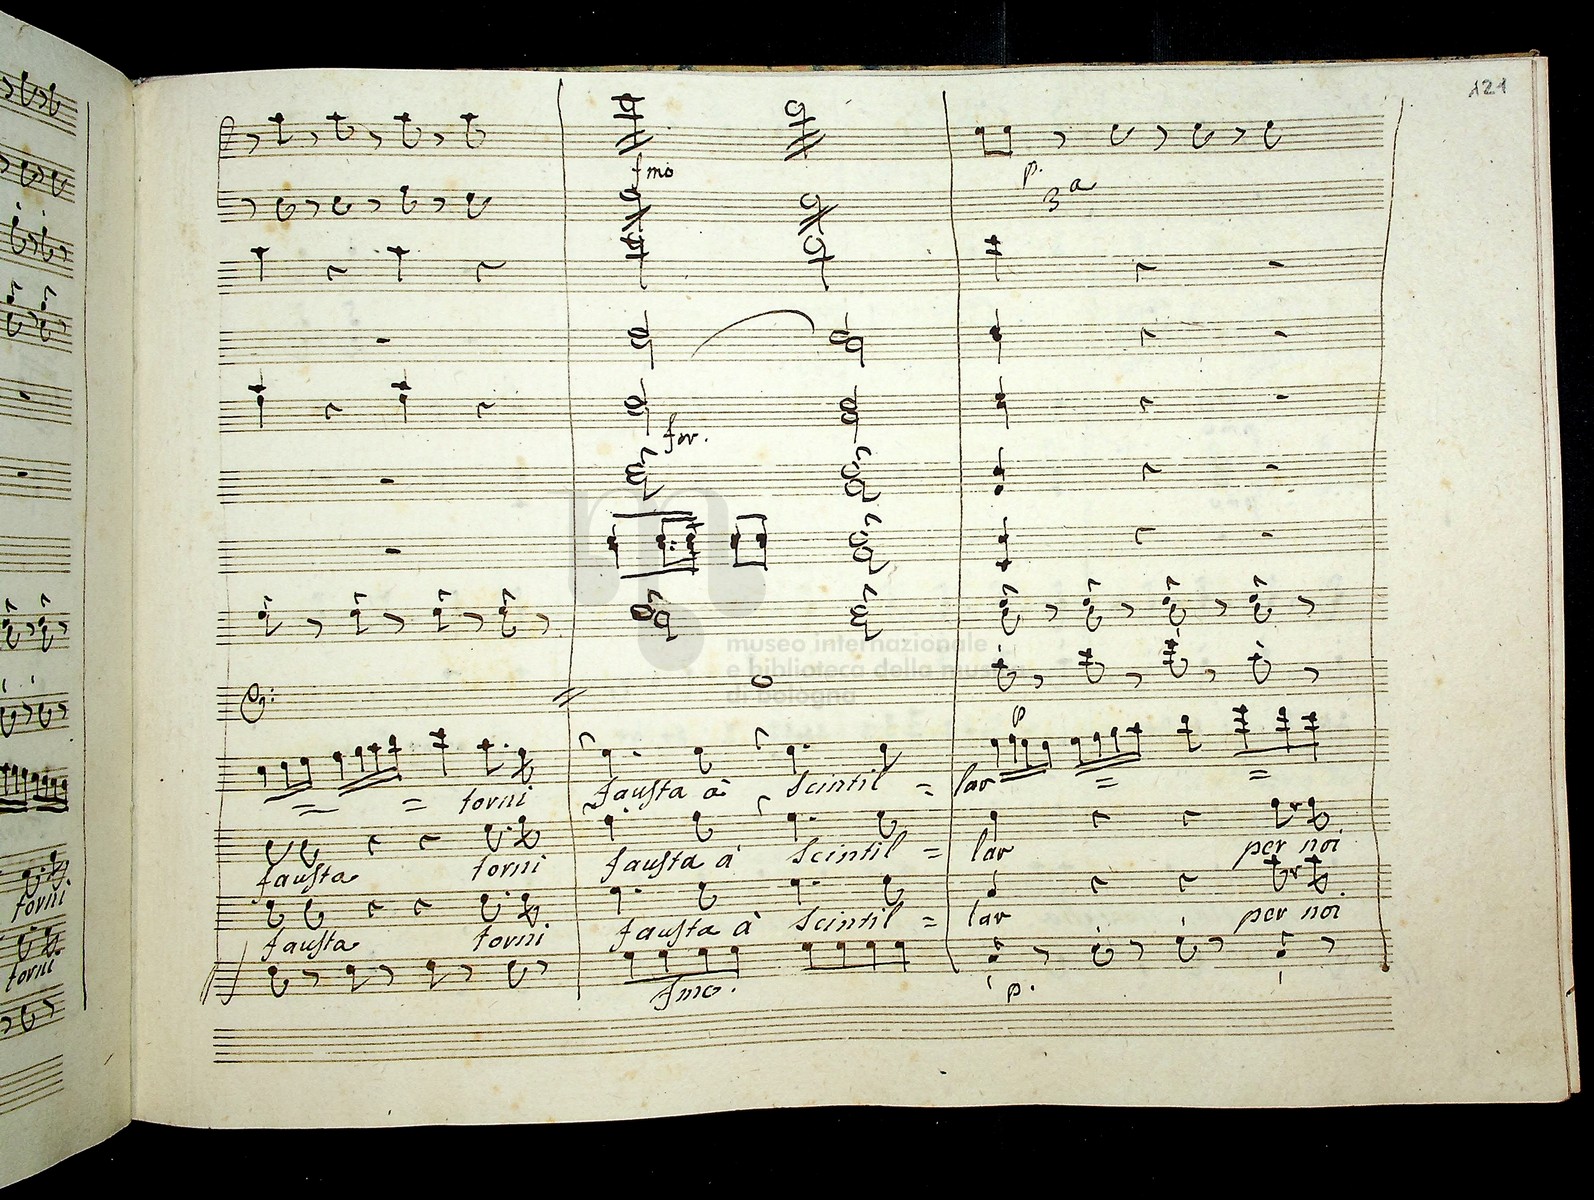 121
fmo
p.
3ª
for.
museo internazionale
e biblioteca della musica
di bologna
p
= = torni fausta à scintil = lar = =
fausta torni fausta à scintil = lar per noi
fausta torni fausta à scintil = lar per noi
fmo. p.
torni
torni